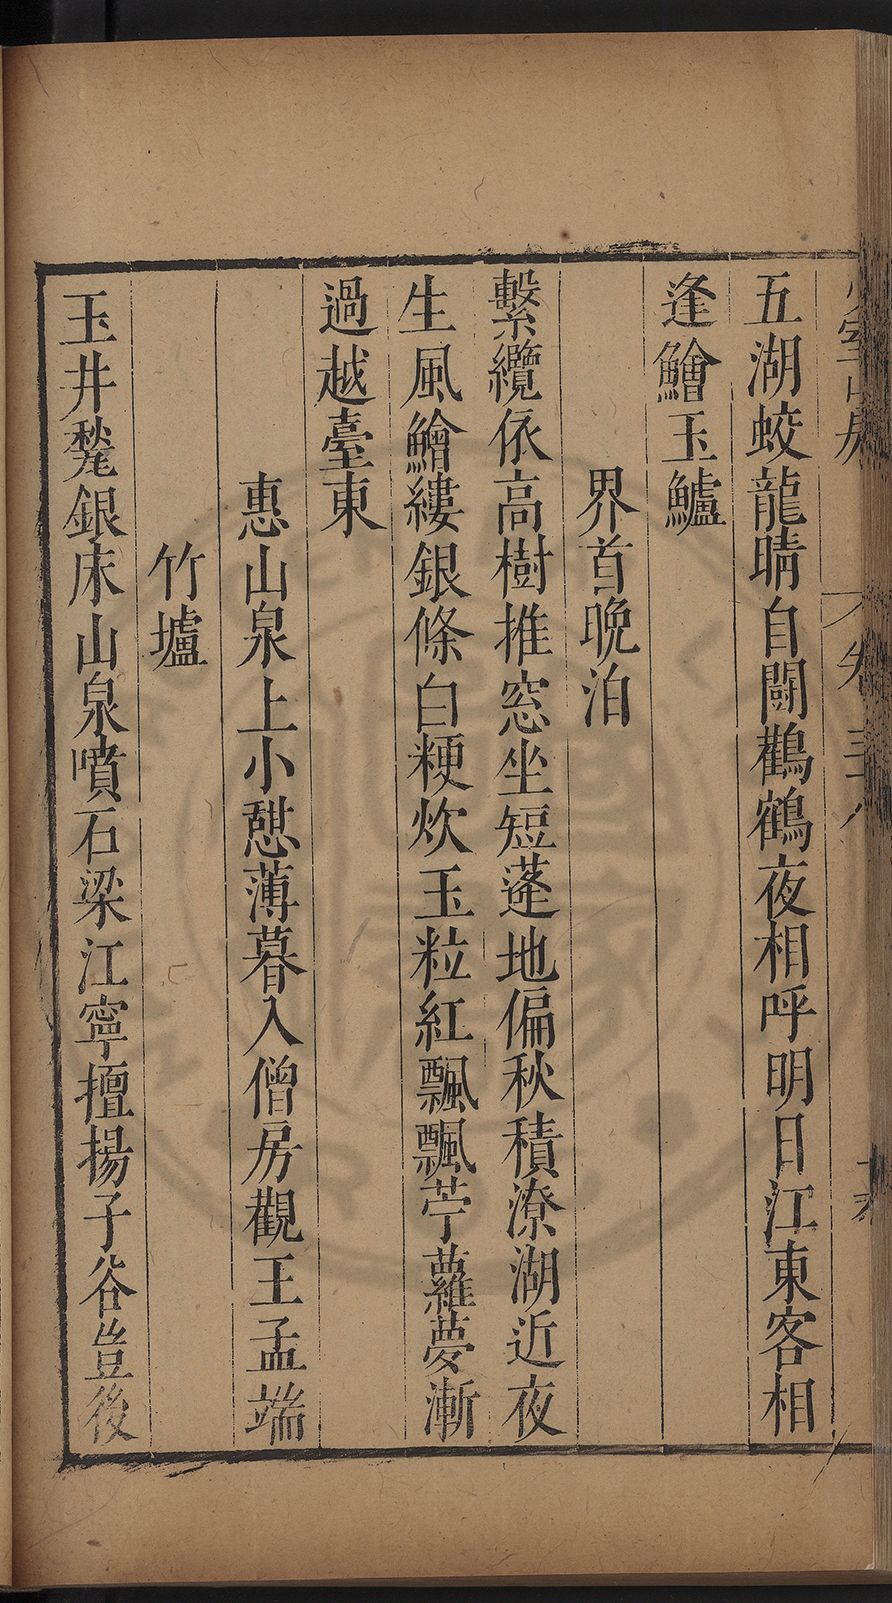 五湖蛟龍晴自鬬鸛鶴夜相呼明日江東客相
逢鱠玉鱸
界首晚泊
繫纜依高樹推窓坐短蓬地偏秋積潦湖近夜
生風鱠縷銀條白粳炊玉粒紅飄飄苧蘿夢漸
過越臺東
惠山泉上小憇薄暮入僧房觀王孟端
竹壚
玉井甃銀床山泉噴石梁江寧擅揚子谷豈後